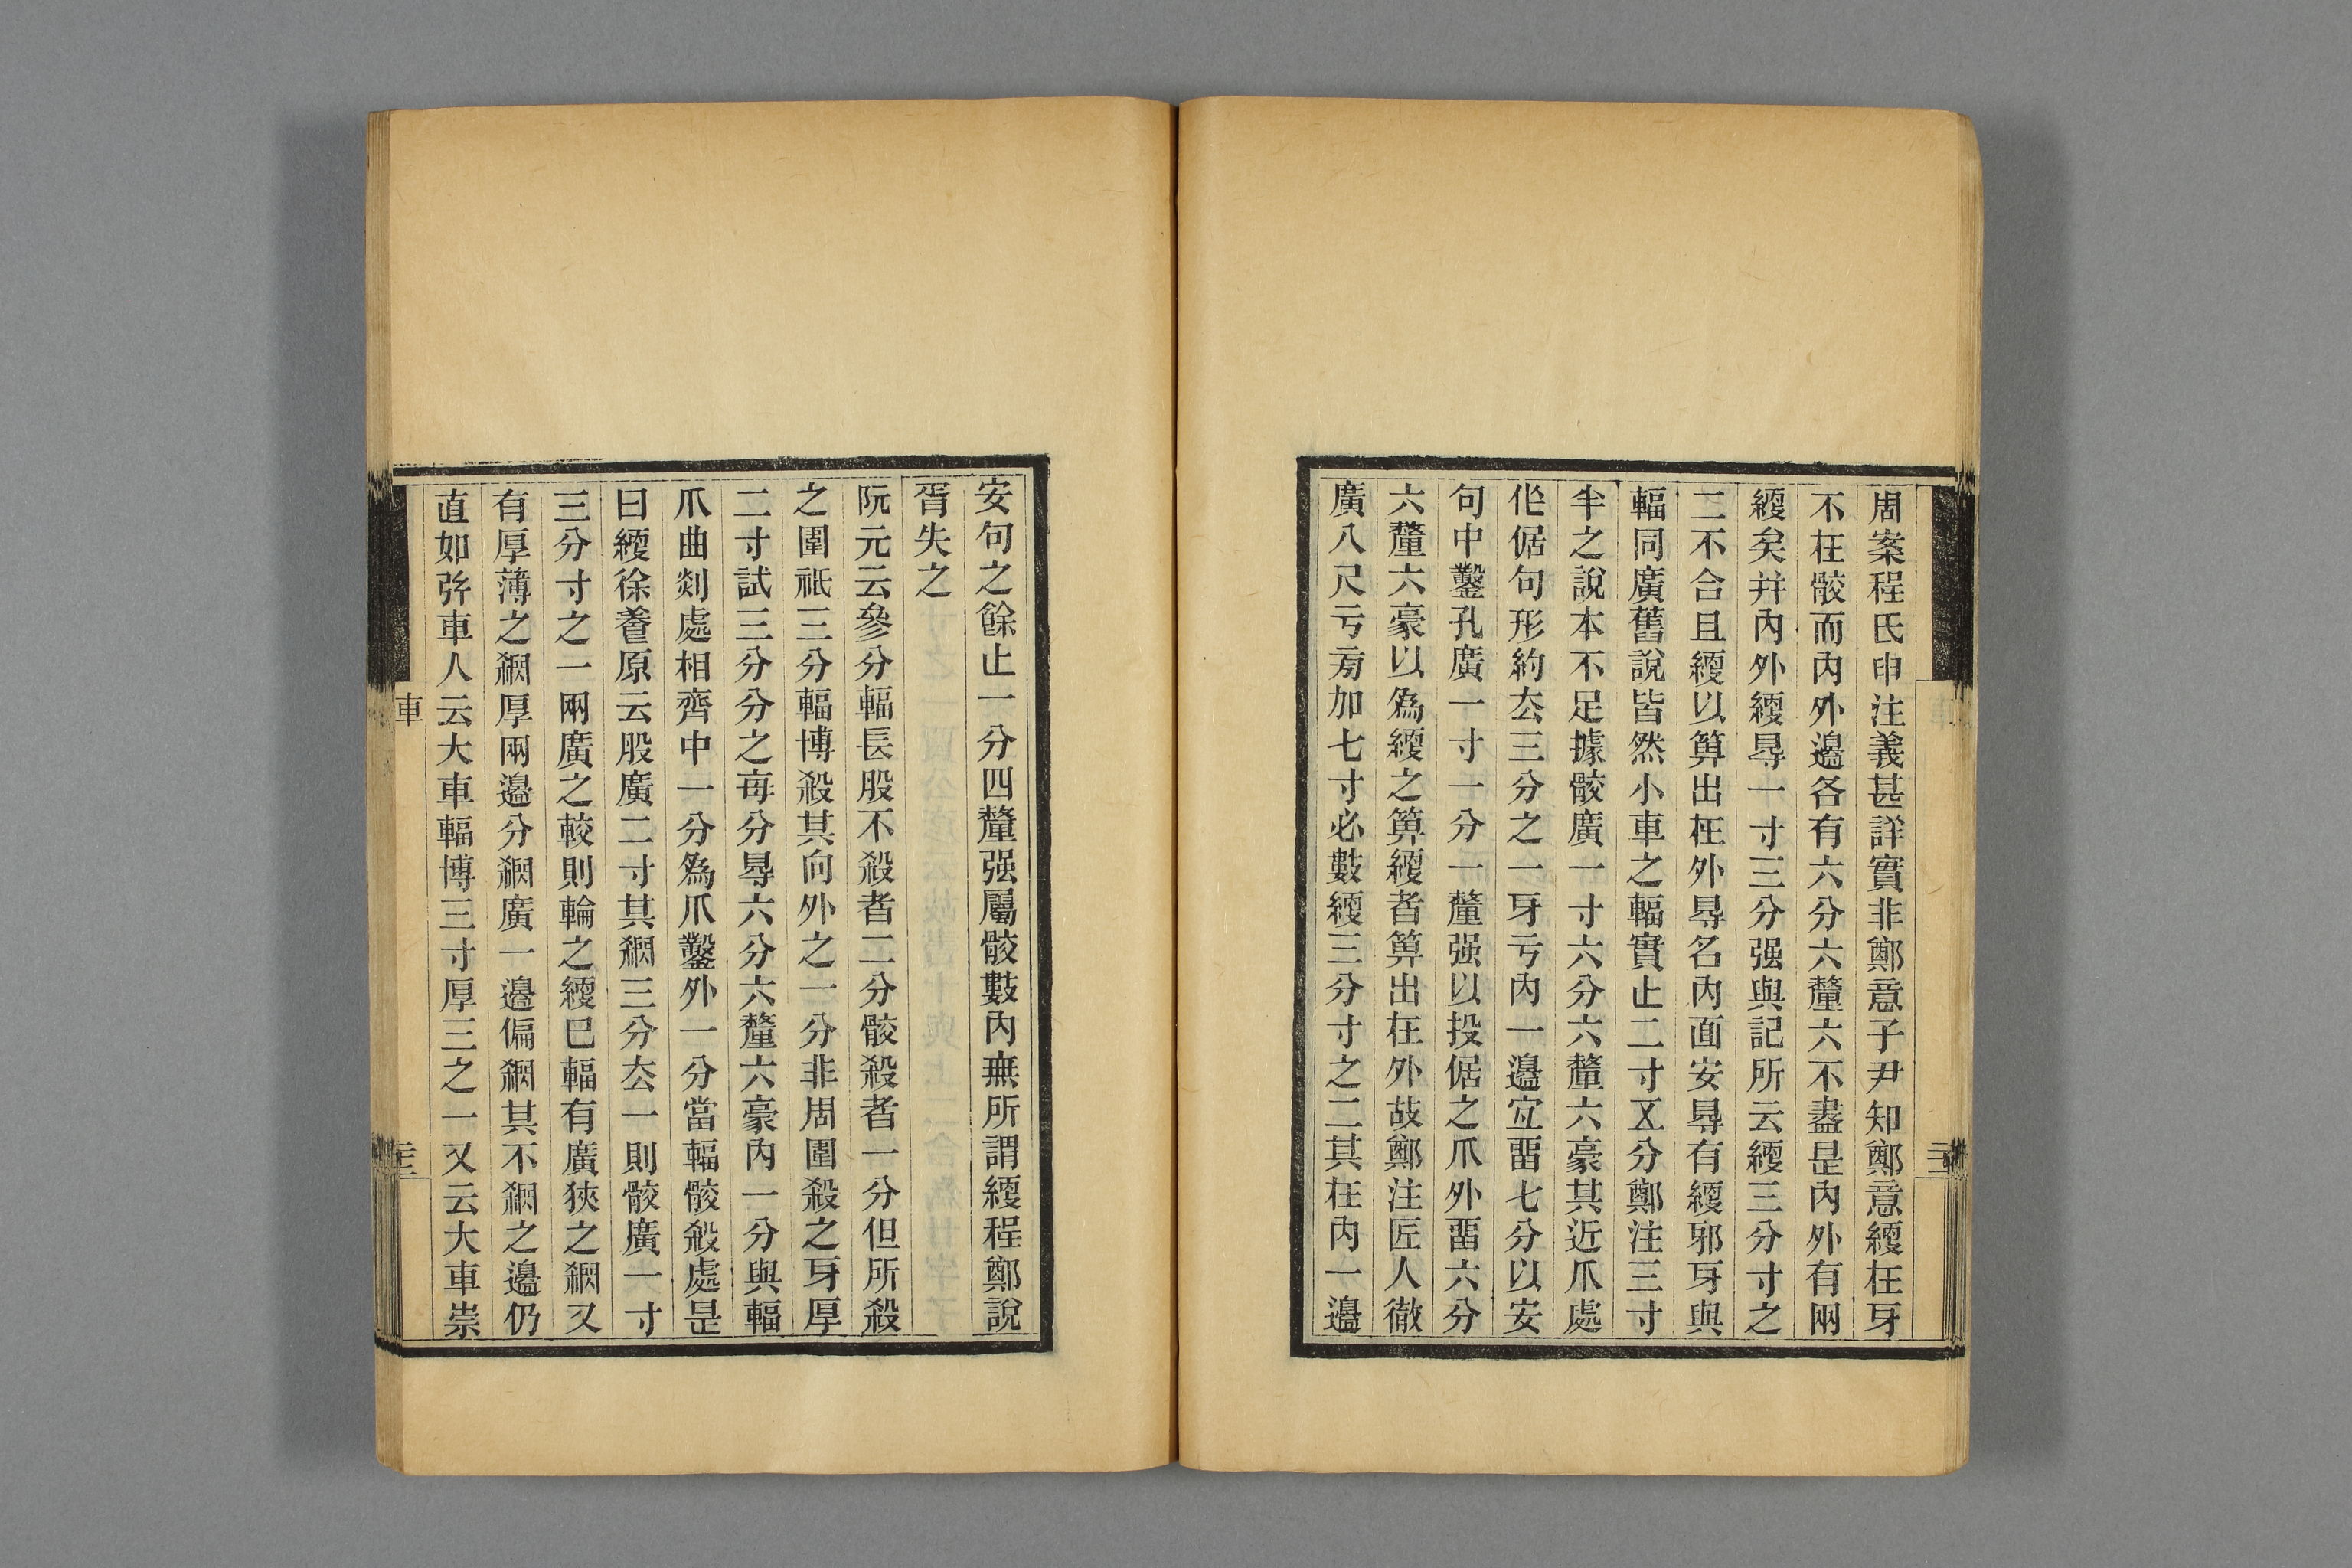 周案程氏申注義甚詳實非鄭意子尹知鄭意綆在牙
不在骹而內外邊各有六分六釐六不盡是內外有兩
綆矣并內外綆㝵一寸三分强與記所云綆三分寸之
二不合且綆以算出在外㝵名內面安㝵有綆邪牙與
輻同廣舊說皆然小車之輻實止二寸五分鄭注三寸
半之說本不足據骹廣一寸六分六釐六豪其近爪處
作倨句形約厺三分之一牙亏內一邊宜畱七分以安
句中鑿孔廣一寸一分一釐强以投倨之爪外畱六分
六釐六豪以爲綆之算綆者算出在外故鄭注匠人徹
廣八尺亏㫄加七寸必數綆三分寸之二其在內一邊
安句之餘止一分四釐强屬骹數內無所謂綆程鄭說
胥失之
阮元云參分輻長股不殺者二分骹殺者一分但所殺
之圍祇三分輻博殺其向外之一分非周圍殺之牙厚
二寸試三分分之每分㝵六分六釐六豪內一分與輻
爪曲剡處相齊中一分爲爪鑿外一分當輻骹殺處是
曰綆徐養原云股廣二寸其𣃁三分厺一則骹廣一寸
三分寸之一兩廣之較則輪之綆巳輻有廣狹之𣃁又
有厚薄之𣃁厚兩邊分𣃁廣一邊偏𣃁其不𣃁之邊仍
直如弦車人云大車輻博三寸厚三之一又云大車崇
車